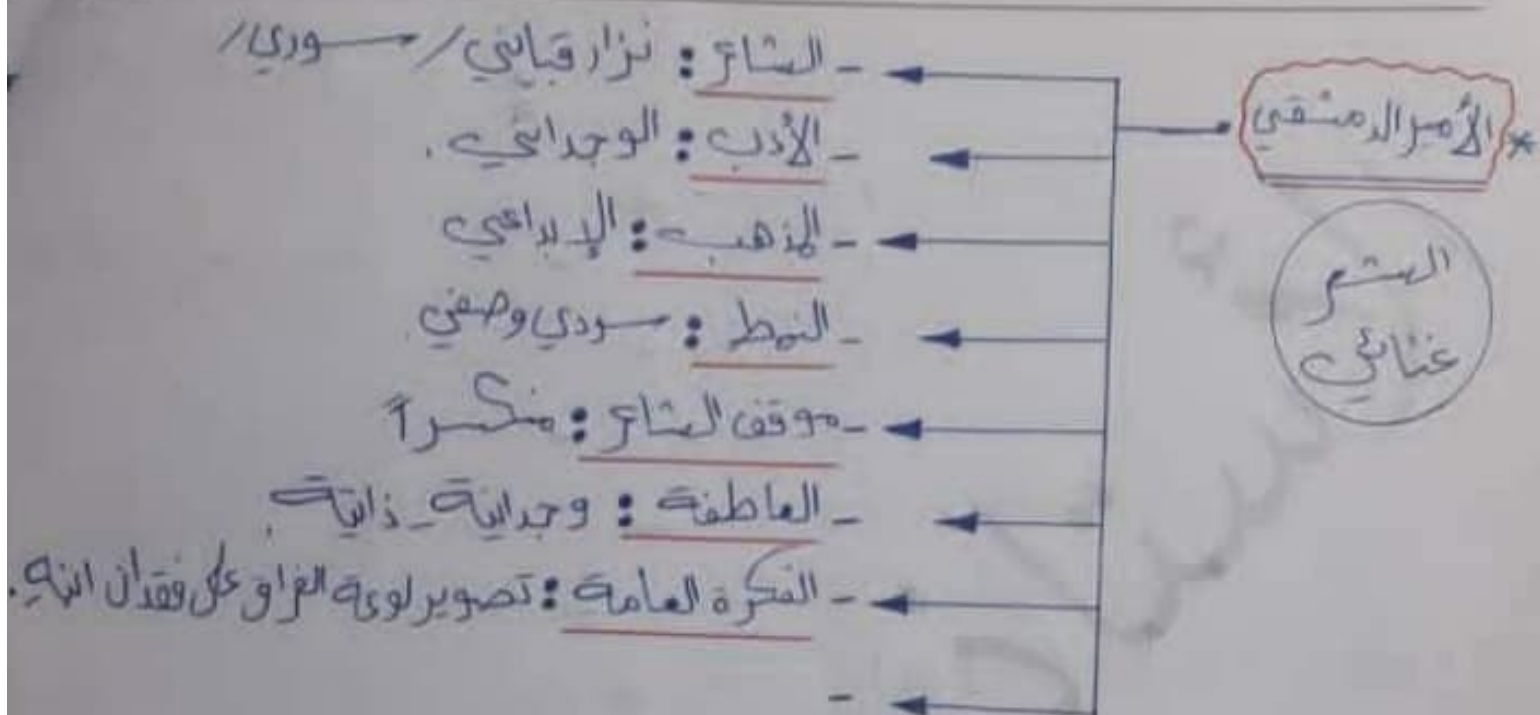 * الأمير الدمشقي
الشعر
غنائي
- الشاعر : نزار قباني / سوري /
- الأدب : الوجداني .
- المذهب : الإبداعي
- النمط : سردي وصفي .
- موقف الشاعر : منكسراً
- العاطفة : وجدانية - ذاتية .
- الفكرة العامة : تصوير لوعة الفراق على فقدان ابنه .
-